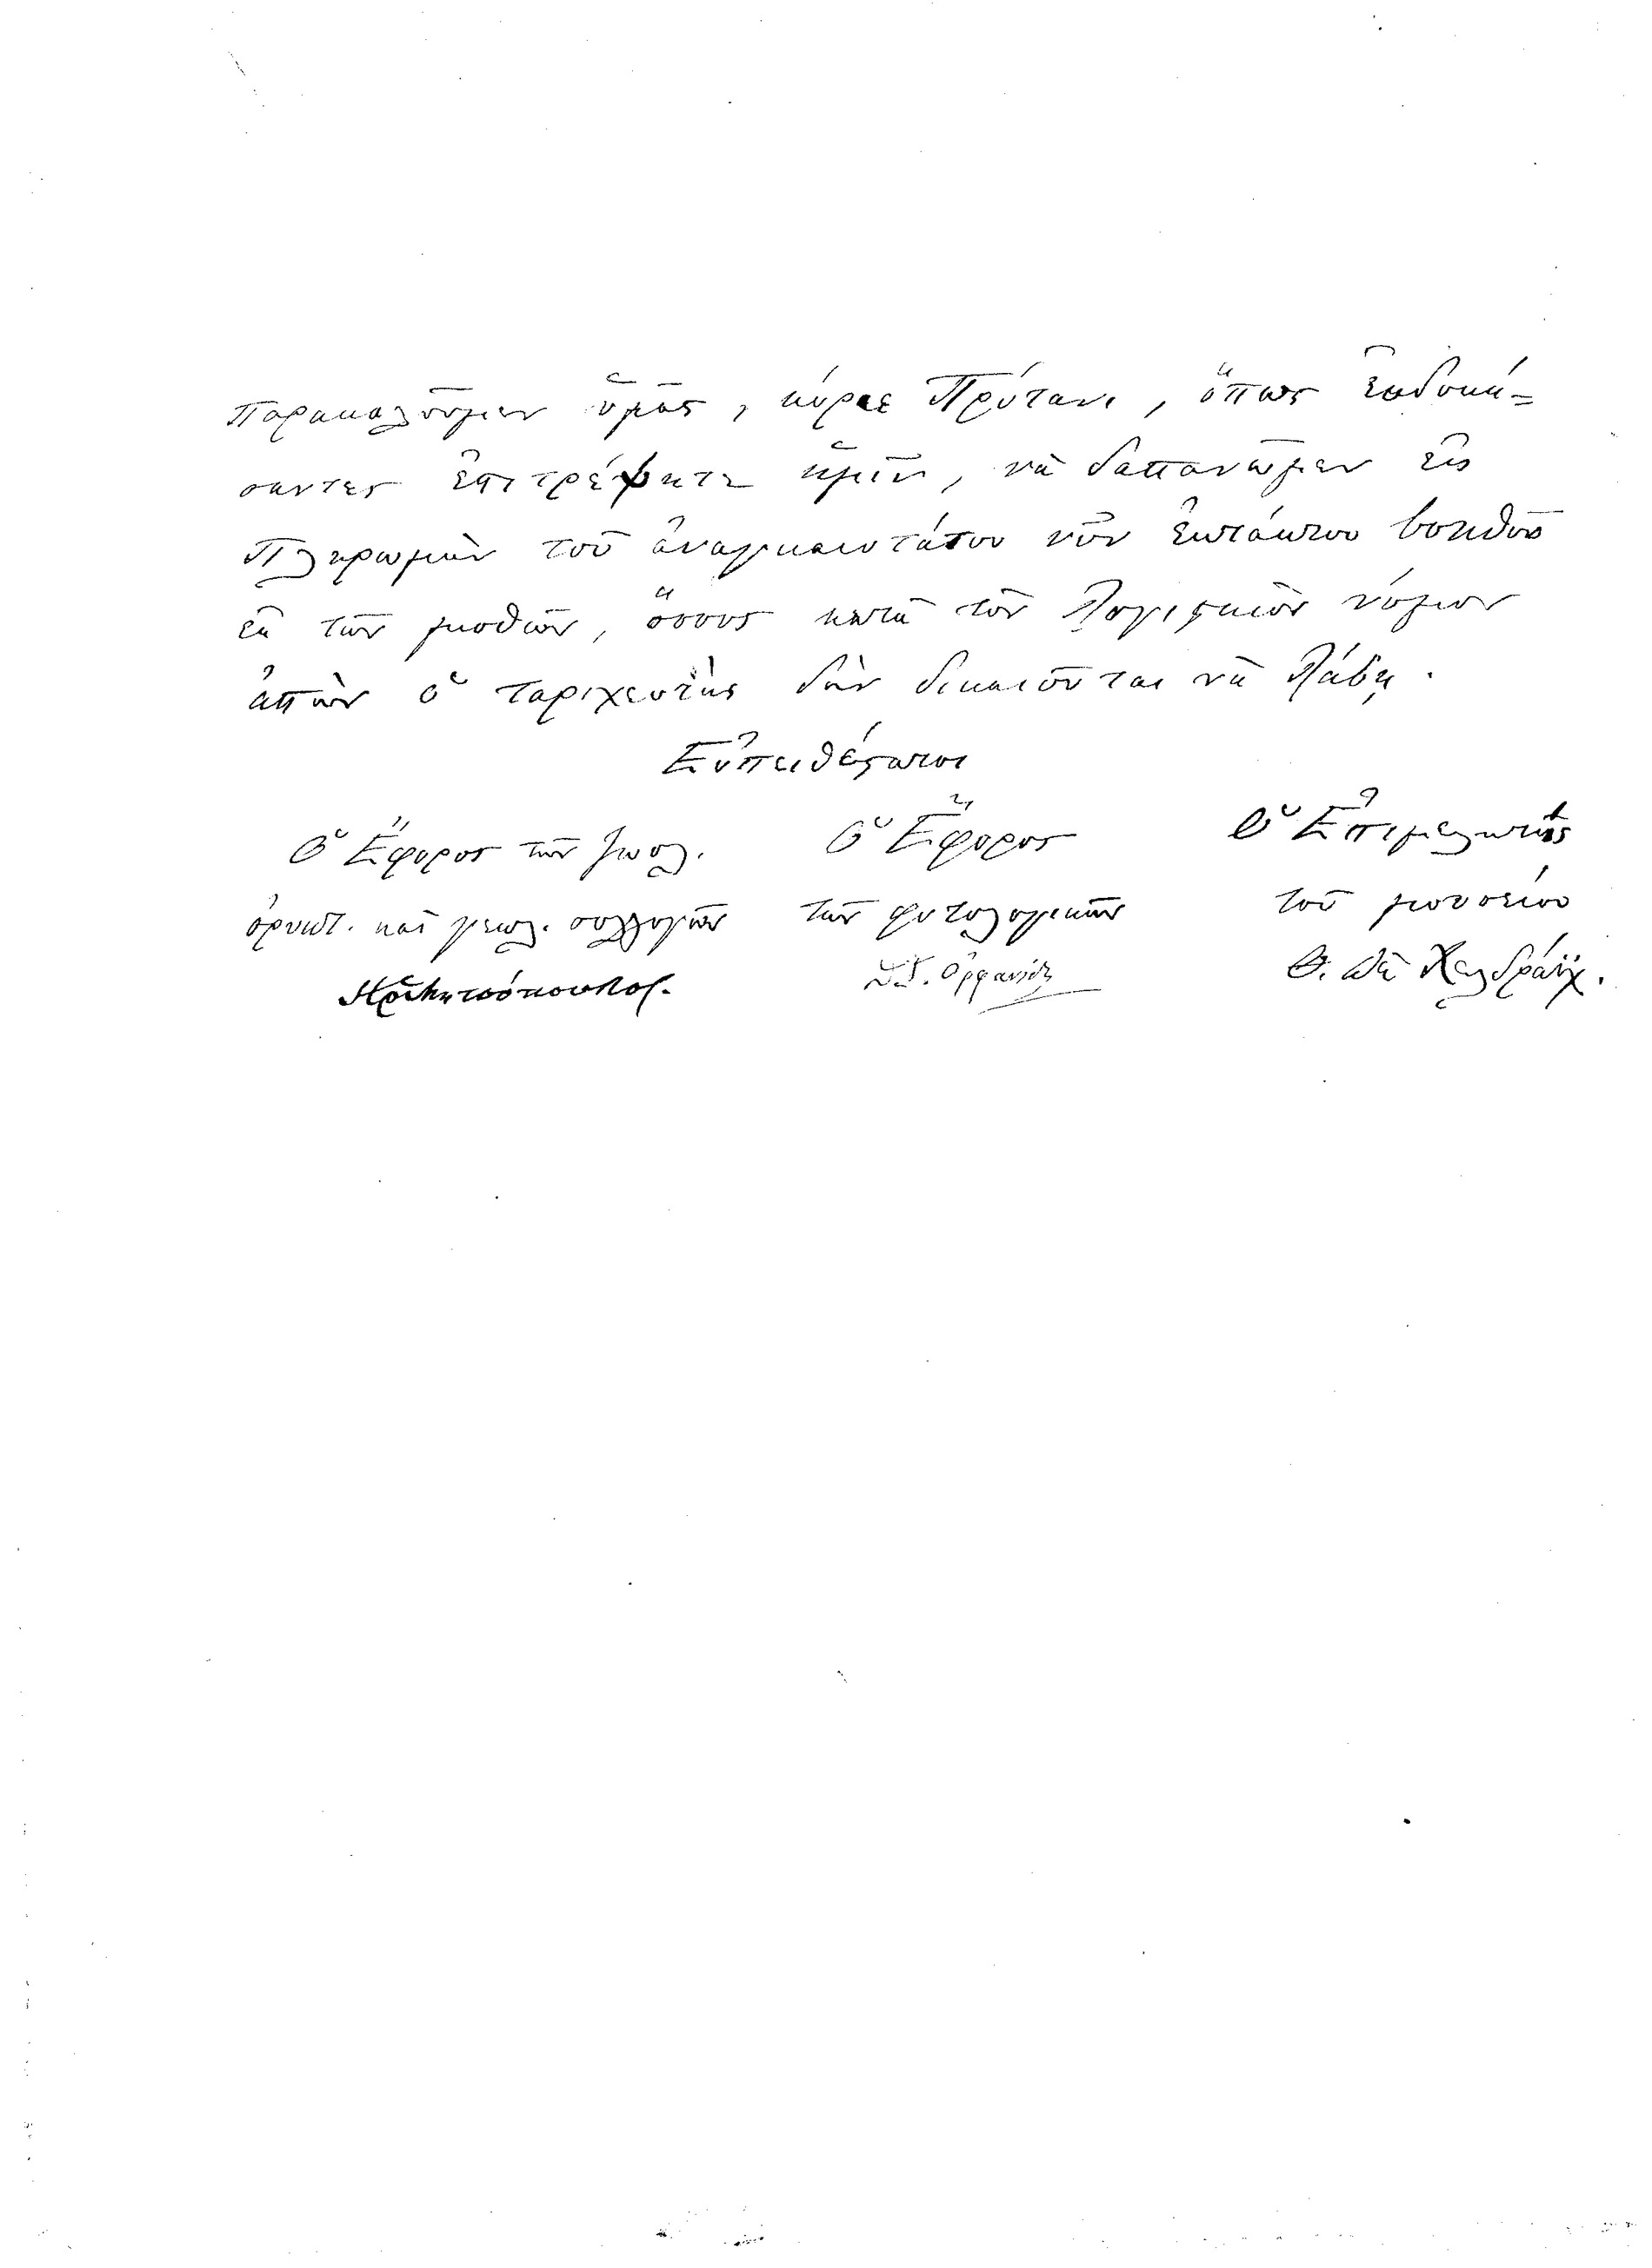 Παρακαλοῦμεν ὑμᾶς, κύριε Πρύτανι, ὅπως εὐδοκή-
σαντες ἐπιτρέψητε ἡμῖν, νὰ δαπανῶμεν εἰς
πληρωμὴν τοῦ ἀναγκαιοτάτου νῦν ἐκτάκτου βοηθοῦ
ἐκ τῶν μισθῶν, ὅσους κατὰ τὸν λογιστικὸν νόμον
ἀπὼν ὁ ταριχευτὴς δὲν δικαιοῦται νὰ λάβῃ.
Εὐπειθέστατοι
Ὁ Ἔφορος τῶν ζωολ. Ὁ Ἔφορος Ὁ Ἐπιμελητὴς
ὀρυκτ. καὶ γεωλ. συλλογῶν τῶν φυτολογικῶν τοῦ μουσείου
Ἡρ. Μητσόπουλος. Θ. Γ. Ὀρφανίδης Θ. δὲ Χελδράϊχ.